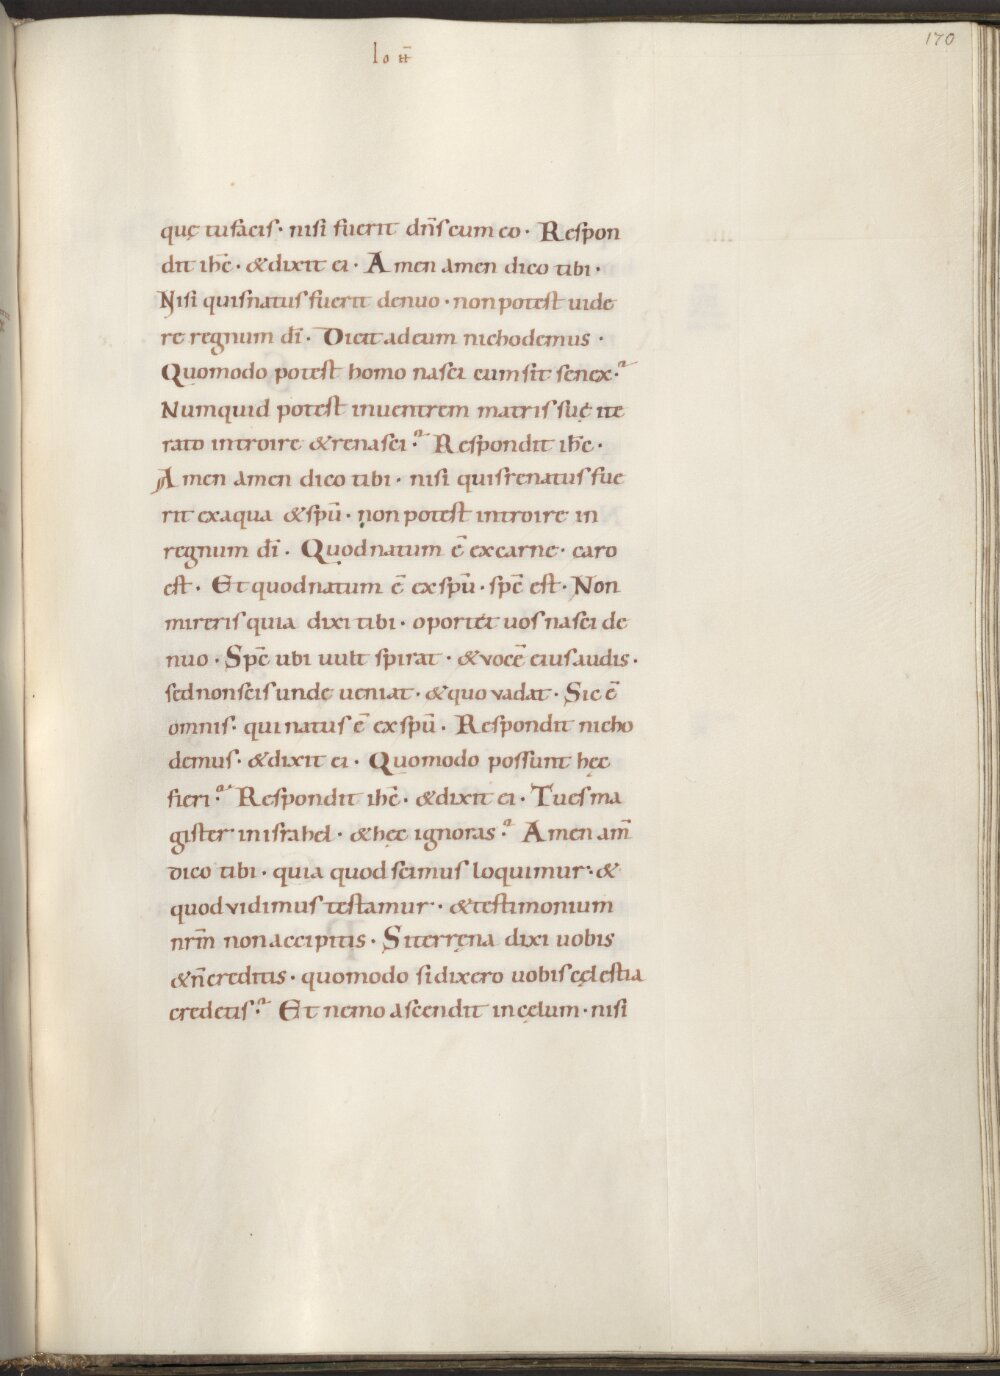 170
quę tu facis · nisi fuerit dn̄s cum eo · Respon
dit ihc̄ · & dixit ei · Amen amen dico tibi ·
Nisi quis natus fuerit denuo · non potest uide
re regnum dī · Dicit ad eum nichodemus ·
Quomodo potest homo nasci cum sit senex ·
Numquid potest in uentrem matris suę ite
rato introire & renasci · Respondit ihc̄ ·
Amen amen dico tibi · nisi quis renatus fue
rit ex aqua & spū · non potest introire in
regnum dī · Quod natum ē ex carne · caro
est · Et quod natum ē ex spū · spc̄ est · Non
mireris quia dixi tibi · oportet uos nasci de
nuo · Spc̄ ubi uult spirat · & uocē eius audis ·
sed non scis unde ueniat · & quo vadat · Sic ē
omnis · qui natus ē ex spū · Respondit nicho
demus · & dixit ei · Quomodo possunt hęc
fieri · Respondit ihc̄ · & dixit ei · Tu es ma
gister in israhel · & hęc ignoras · Amen am̄
dico tibi · quia quod scimus loquimur · &
quod vidimus testamur · & testimonium
nrm̄ non accipitis · Si terręna dixi uobis
& n̄ creditis · quomodo si dixero uobis cęlestia
credetis · Et nemo ascendit in cęlum · nisi